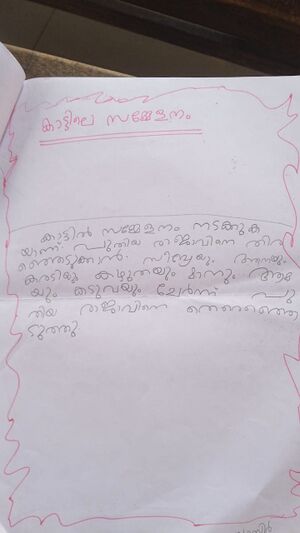 കാട്ടിലെ സമ്മേളനം
കാട്ടിൽ സമ്മേളനം നടക്കുക
യാണ് പുതിയ രാജാവിനെ തിര
ഞ്ഞെടുക്കാൻ. സിംഹവും ആനയും
കരടിയും കഴുതയും മാനും ആമ
യും കടുവയും ചേർന്ന് പു
തിയ രാജാവിനെ
ടുത്തു